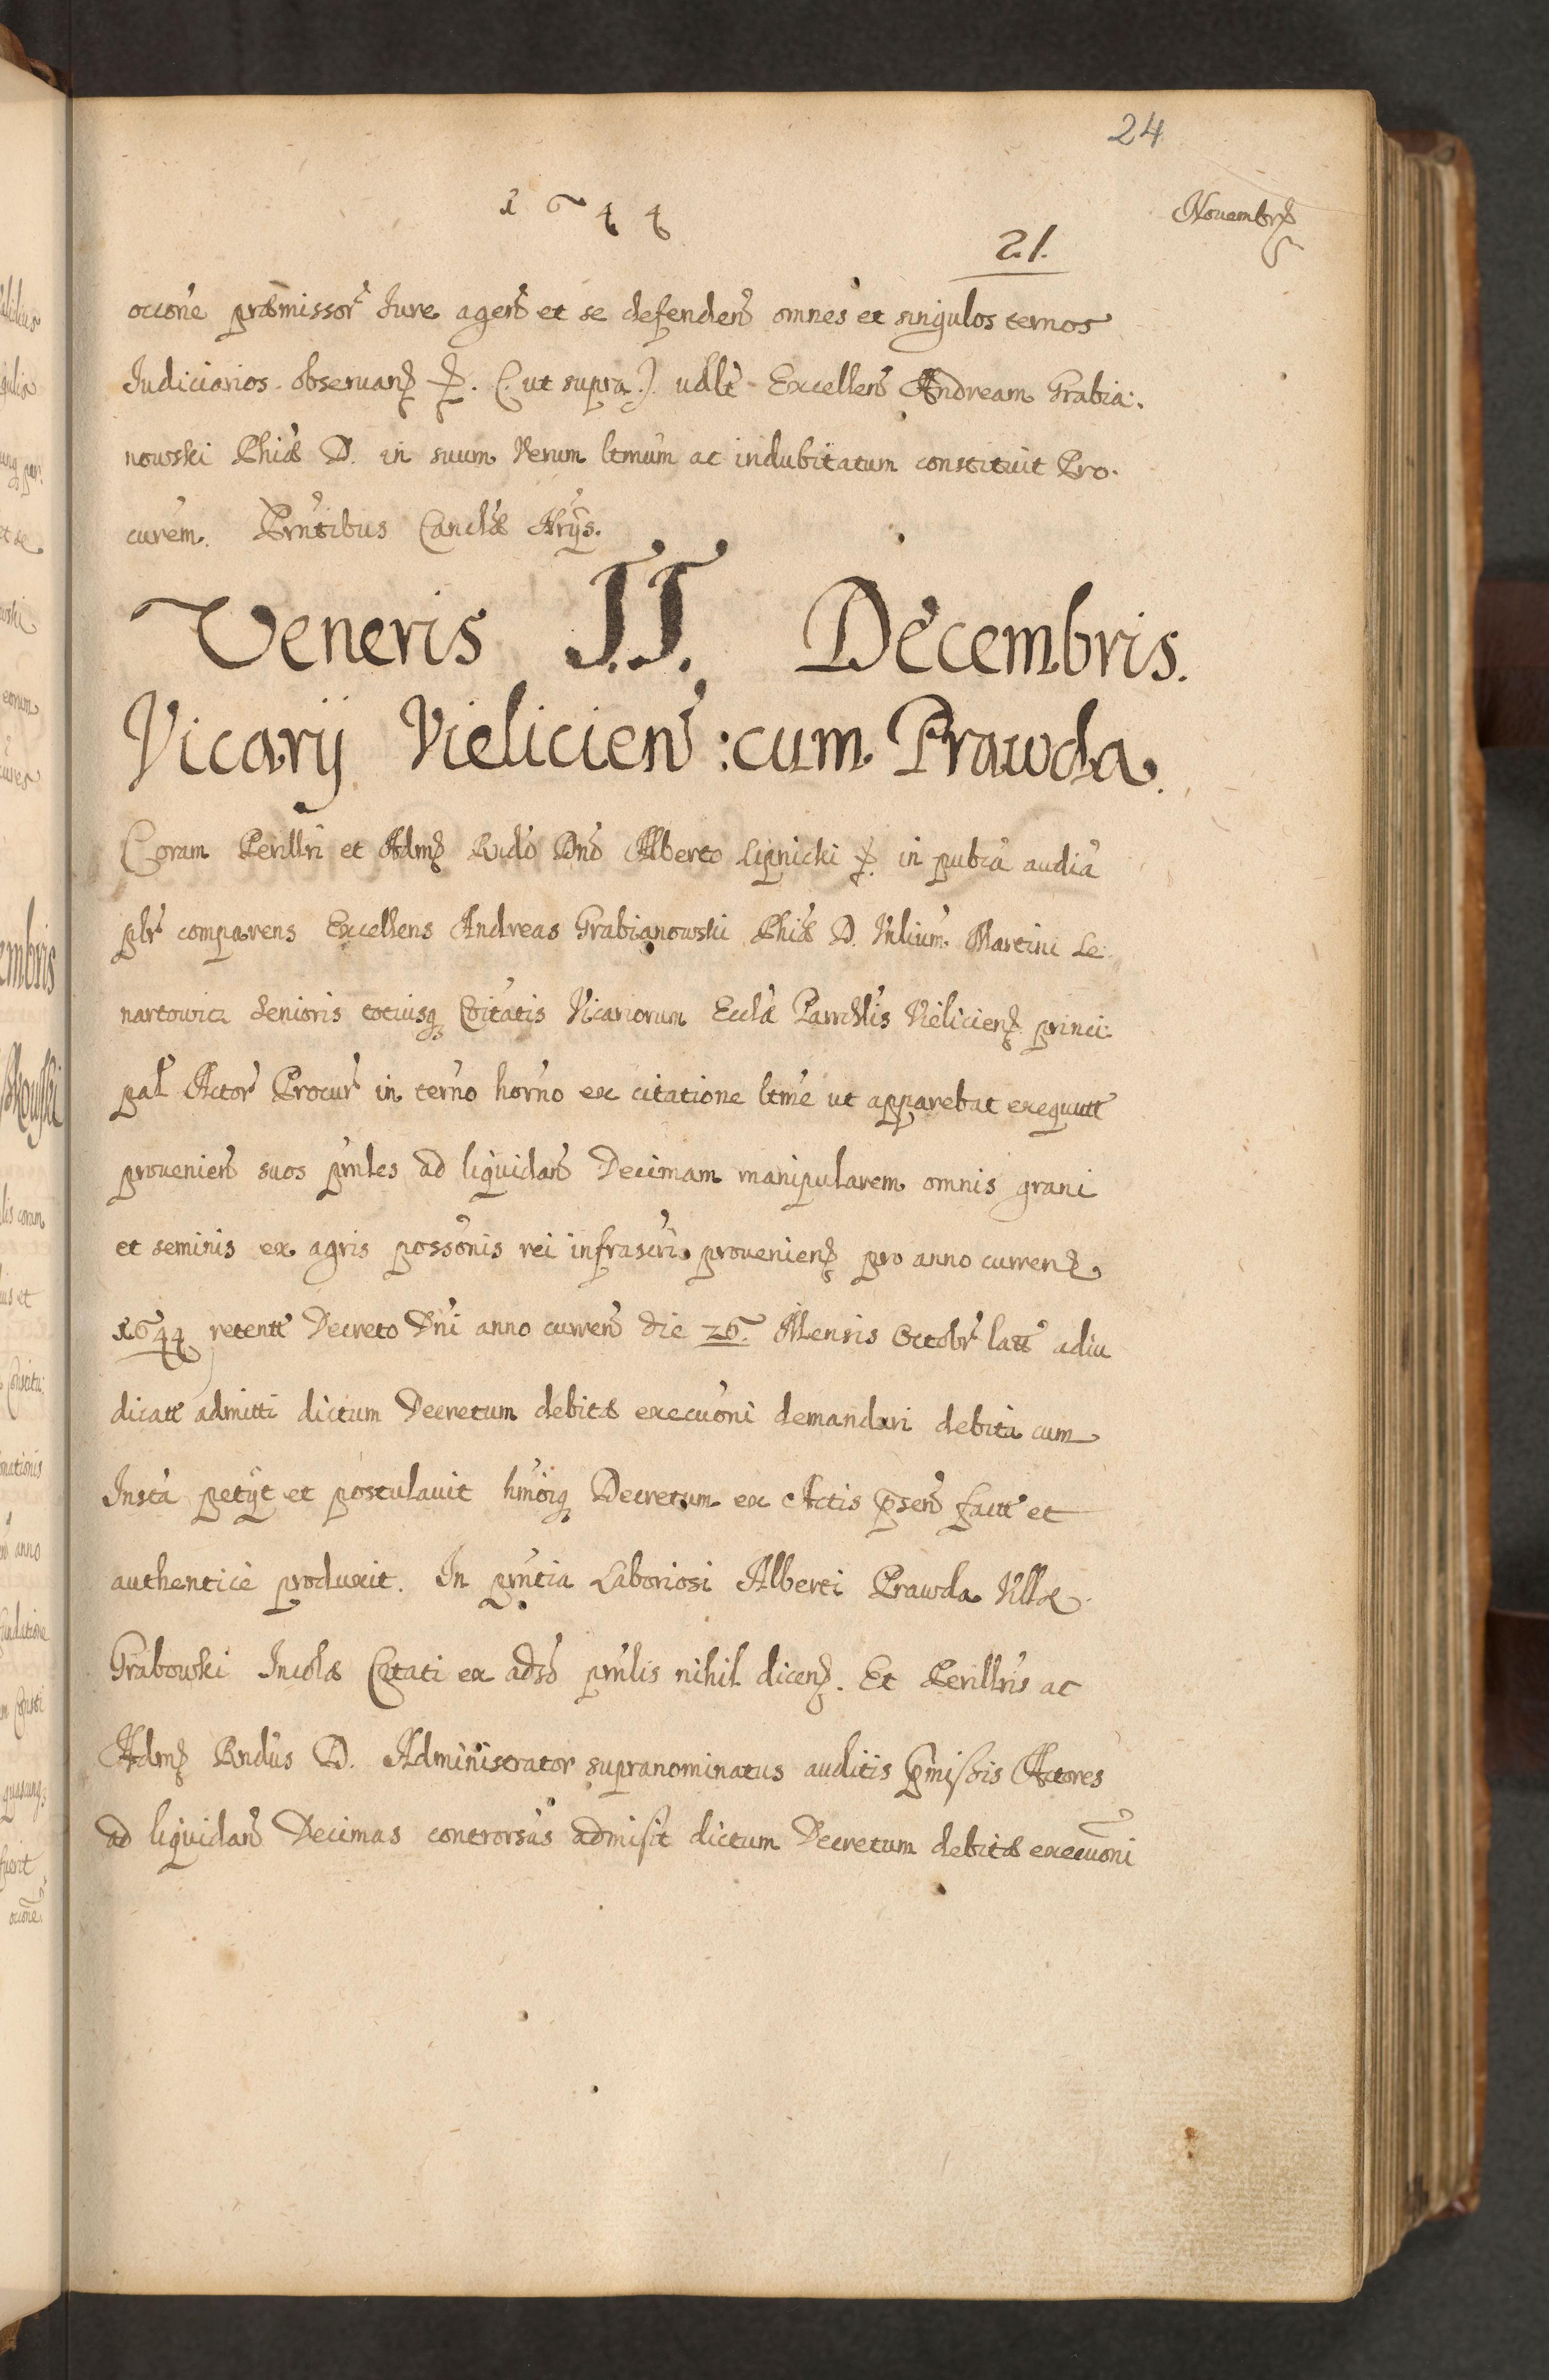 24
1644
Novembrs
21.
occone præmissor Jure agen et se defenden omnes et singulos ternos
Judiciarios observan (: ut supra :) vdlt Excellen Andream Grabia:
nowski Phiæ D. in suum Verum ltmum ac indubitatum constituit Pro:
curem. Prntibus Canclæ Nrijs.
Veneris II. Decembris.
Vicarij Vieliciens: cum Prawda.
Coram Perillri et Adm Rndo Dno Alberto Lipnicki in publca audia
plr comparens Excellens Andreas Grabianowski Phiæ D. Vnlium Martini Le:
nartowicz Senioris totiusq Coitatis Vicariorum Eccla Parochlis Vieliciens princi:
pal Actor Procur in terno horno ex citatione ltme ut apparebat exequutt
provenien suos prnles ad liquidan Decimam manipularem omnis grani
et seminis ex agris possonis rei infrascri provenien pro anno curren
1644 retentt Decreto Dni anno curren die 26. Mensis Octobr latt adiu
dicatt admitti dictum Decretum debitæ execuoni demandari debita cum
Insta petijt et postulavit hmoiq Decretum ex Actis psen factt et
authentice produxit. In prntia Laboriosi Alberti Prawda Villæ
Grabowki Incolæ Citati ex adso prnlis nihil dicen. Et Perillris ac
Adm Rndus D. Administrator supranominatus auditis pmissis Actores
ad liquidan Decimas controrsas admisit dictum Decretum debitæ execuoni